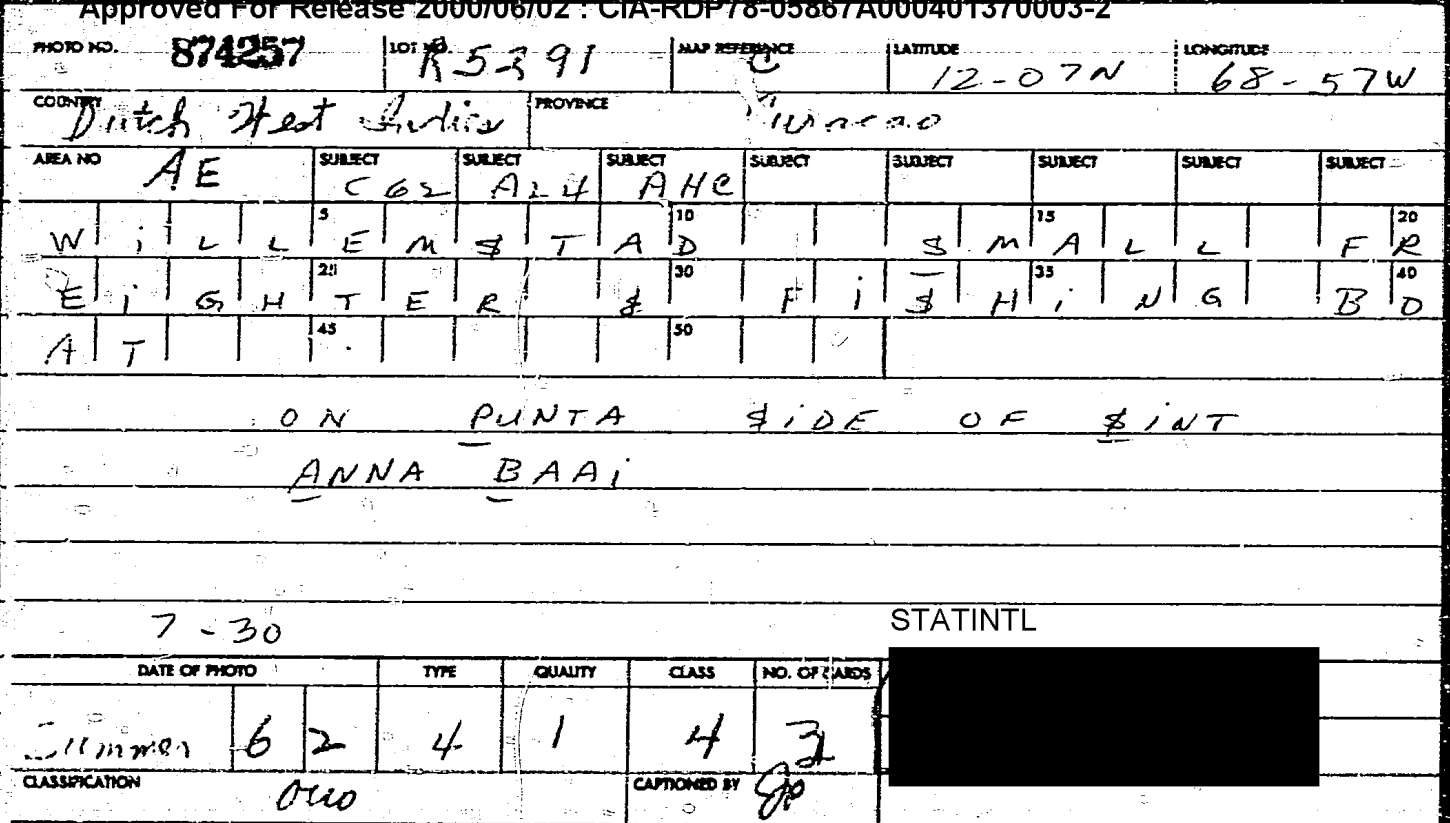 Approved For Release 2000/06/02 : CIA-RDP78-05867A000401370003-2
PHOTO NO. 874257 LOT NO. R5391 MAP REFERENCE C LATITUDE 12-07N LONGITUDE 68-57W
COUNTRY Dutch West Indies PROVINCE Curacao
AREA NO AE SUBJECT C62 SUBJECT A24 SUBJECT AHC SUBJECT SUBJECT SUBJECT SUBJECT SUBJECT
5 10 15 20
WiLLEM$TAD $MALL FR
25 30 35 40
EiGHTER $ Fi$HiNG BO
45 50
AT
ON PUNTA $iDE OF $iNT
ANNA BAAi
7-30
STATINTL
DATE OF PHOTO TYPE QUALITY CLASS NO. OF CARDS
Summer 62 4 1 4
CLASSIFICATION ouo CAPTIONED BY